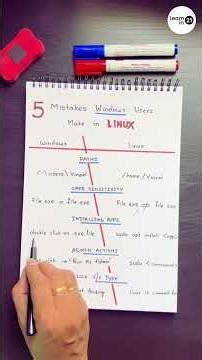 Learn
in
5 Mistakes Windows Users
Make in LINUX
Windows
Linux
PATHS
C:\Users\Vimal
/home/Vimal
CASE SENSITIVITY
File.exe = file.exe
File.exe ≠ file.exe
INSTALLING APPS
double click on .exe file
sudo apt install <app>
ADMIN ACTIONS
sudo <command>